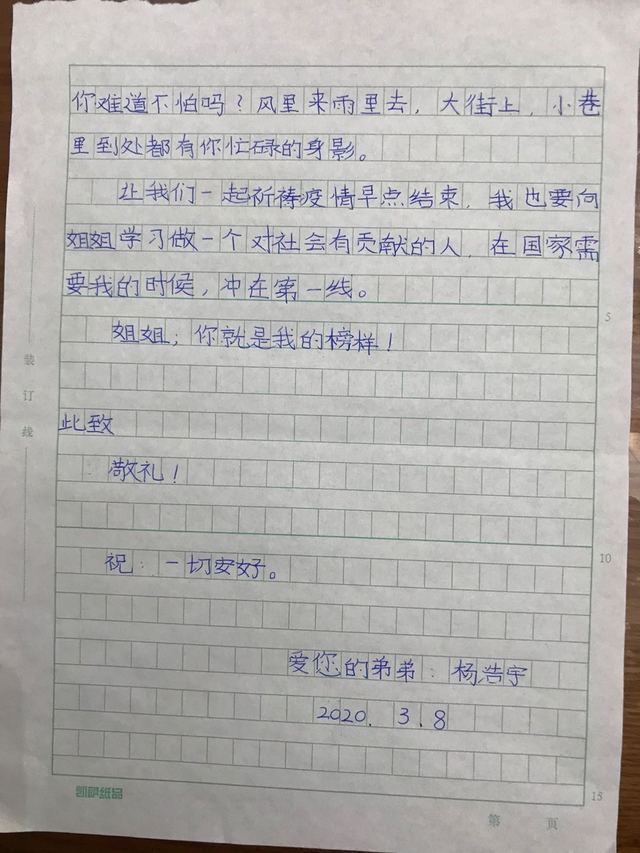 你难道不怕吗？风里来雨里去，大街上，小巷
里到处都有你忙碌的身影。
让我们一起祈祷疫情早点结束，我也要向
姐姐学习做一个对社会有贡献的人，在国家需
要我的时候，冲在第一线。
5
姐姐；你就是我的榜样！
装
订
线
此致
敬礼！
10
祝：一切安好。
爱您的弟弟：杨浩宇
2020.3.8
凯萨纸品
15
第 页